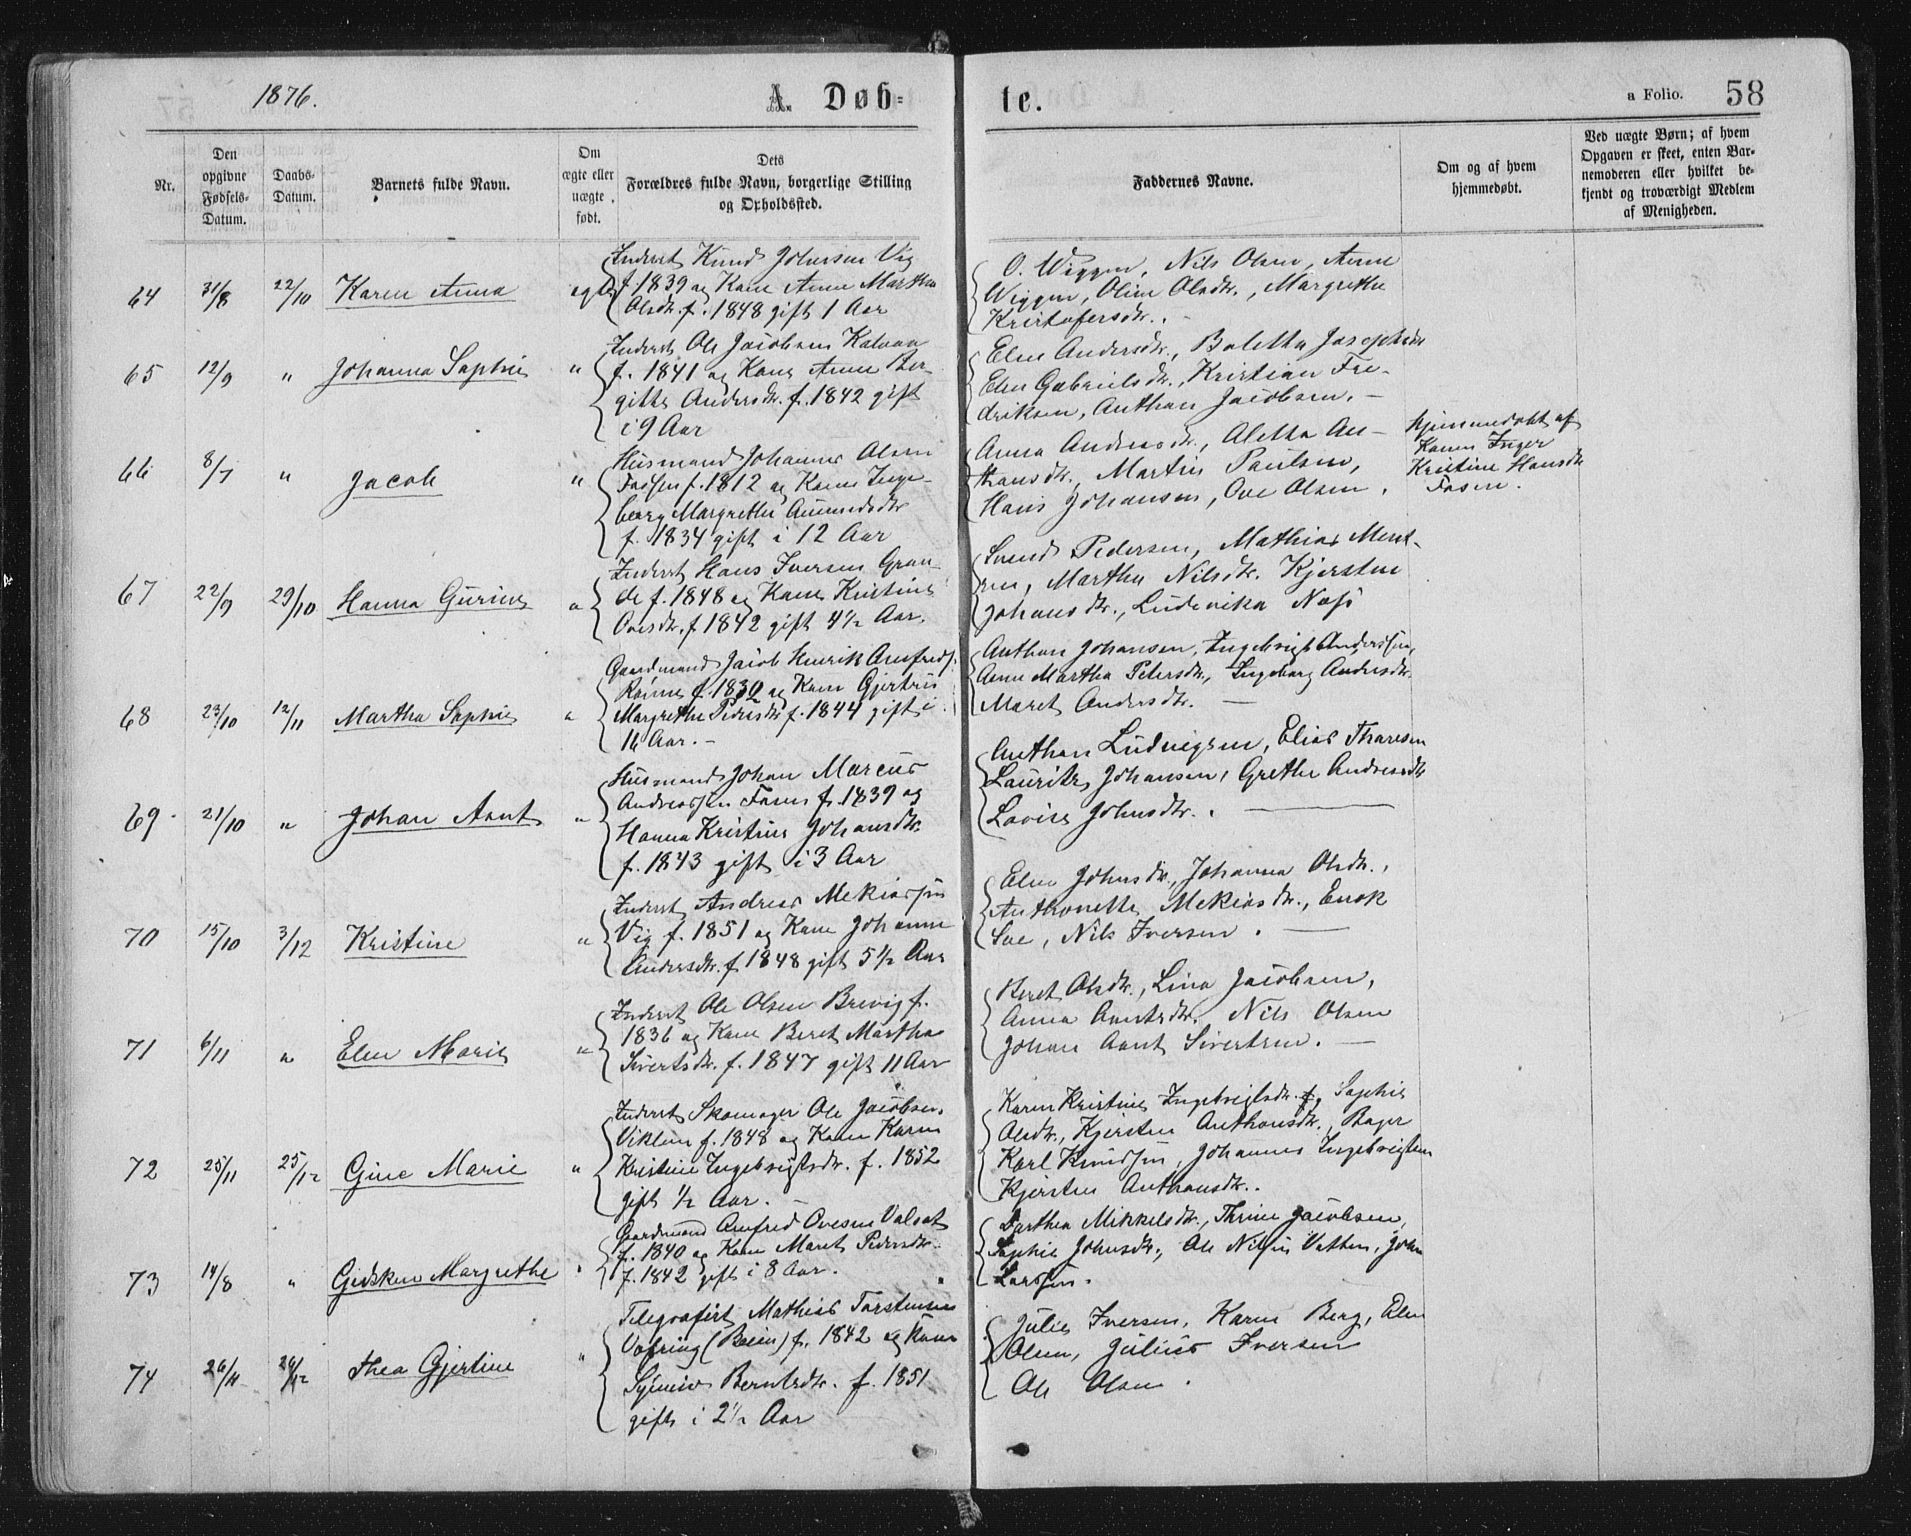 1876.
A. Døb-
te.
a Folio. 58
Nr.
Den opgivne Fødsels-Datum.
Daabs-Datum.
Barnets fulde Navn.
Om ægte eller uægte født.
Dets Forældres fulde Navn, borgerlige Stilling og Opholdssted.
Faddernes Navne.
Om og af hvem hjemmedøbt.
Ved uægte Børn; af hvem Opgaven er skeet, enten Barnemoderen eller hvilket bekjendt og troværdigt Medlem af Menigheden.
64 31/8 22/10 Karen Anna ægte
Inderst Knud Johnsen Vig
f. 1839 og Kone Anne Martha
Olsdtr. f. 1848 gift 1 Aar
O. Wiggen, Nils Olsen, Anne
Wiggen, Oline Olsdtr., Margrethe
Kristofersdtr.
65 12/9 " Johanna Sophie "
Inderst Ole Jacobsen
f. 1841 og Kone Anne Ber-
gitte Andersdtr. f. 1842 gift
i 9 Aar
Elen Andersdtr., Boletha Josephsen
Elen Gabrielsdtr., Kristian Fre-
driksen, Anthon Jacobsen. -
66 8/7 " Jacob "
Husmand Johannes Olsen
f. 1812 og Kone Inge-
borg Margrethe
f. 1834 gift i 12 Aar
Anna Andreasdtr., Aletha An-
thonsdtr., Martin Paulsen,
Hans Johansen, Ove Olsen.
Hjemmedøbt af
Karen Inger
Kristine Hansdtr
Fosen.
67 22/9 29/10 Hanna Gurine "
Inderst Hans Iversen Gran-
de f. 1848 og Kone Kristine
Ovesdtr. f. 1842 gift 4 1/2 Aar.
Svend Pedersen, Mathias Ment-
zen, Martha Nilsdtr. Kjersten
Johansdtr., Ludevika Næsø
68 23/10 12/11 Martha Sophie "
Gaardmand Jacob Henrik Arnfreds.
f. 1830 og Kone Gjertrud
Margrethe Pedersdtr f. 1844 gift i
14 Aar. -
Anthon Johansen, Ingebrigt Anderssen,
Anne Martha Petersdtr., Ingeborg Andersdtr.
Maret Andersdtr. -
69 21/10 " Johan Arnt "
Husmand Johan Marcus
Andreassen Fosen f. 1839 og
Hanna Kristine Johansdtr.
f. 1843 gift i 3 Aar
Anthon Ludvigsen, Elias Thoresen
Lauritz Johansen, Grethe Andreasdtr
Lovise Johnsdtr. -
70 15/10 3/12 Kristine "
Inderst Andreas Mekiassen
Vig f. 1851 og Kone Johanna
Andersdtr. f 1848 gift 5 1/2 Aar
Elen Johnsdtr., Johanna Olsdtr.,
Anthonette Mekiasdtr., Enok
Soe, Nils Iversen. -
71 6/11 " Elen Marie "
Inderst Ole Olsen Brevig f.
1836 og Kone Beret Martha
Sivertsdtr. f. 1847 gift 11 Aar
Beret Olsdtr., Lina Jacobsen,
Anna Arntsdtr. Nils Olsen
Johan Arnt Sivertsen. -
72 25/11 25/12 Gine Marie "
Inderst Skomager Ole Jacobsen
Viklem f. 1848 og Kone Karen
Kristine Ingebrigtsdtr. f. 1852
gift 1/2 Aar.
Karen Kristine Ingebrigtsdtr., Sophie
Olsdtr., Kjersten Anthonsdtr., Bager
Karl Knudsen, Johannes Ingebrigtsen
Kjersten Anthonsdtr..
73 14/8 " Gidsken Margrethe "
Gaardmand Arnfred Ovesen Valsøt
f. 1840 og Kone Maret Pedersdtr.
f. 1842 gift i 8 Aar.
Dorthea Mikkelsdtr., Thrine Jacobsen,
Sophie Johnsdtr., Ole Nilsen Vatten, John
Larssen.
74 26/11 26/12 Thea Gjertine "
Telegrafist Mathias Torstensen
Vofring (Beien) f. 1842 og Kone
Synneva Berntsdtr. f. 1851
gift i 2 1/2 Aar
Julie Iversen, Karen Berg, Elen
Olsen, Julius Iversen
Ole Olsen.